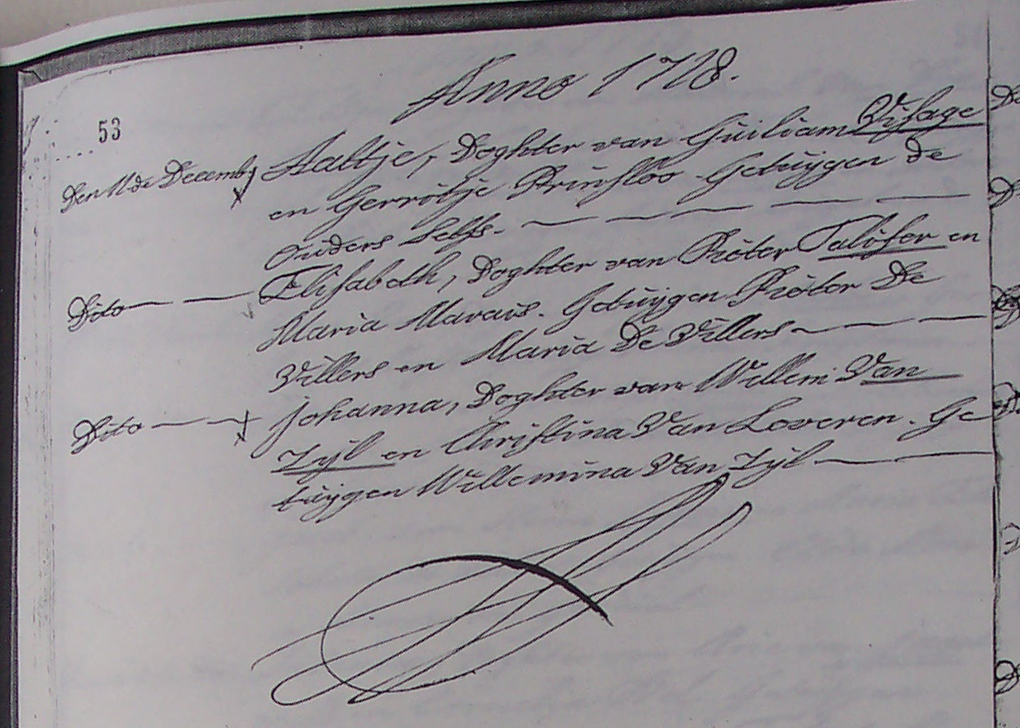 Anno 1728.
53
Den 11de Decembr Aaltje, Doghter van Guiliam Visage
en Gerrotje Prinsloo. Getuygen de
Ouders Selfs.
Dito Elisabeth, Doghter van Piéter Taléfer en
Maria Marais. Getuygen Piéter De
Villers en Maria De Villers
Dito Johanna, Doghter van Willem Van
Zyl en Christina Van Loveren. Ge
tuygen Willemina Van Zyl